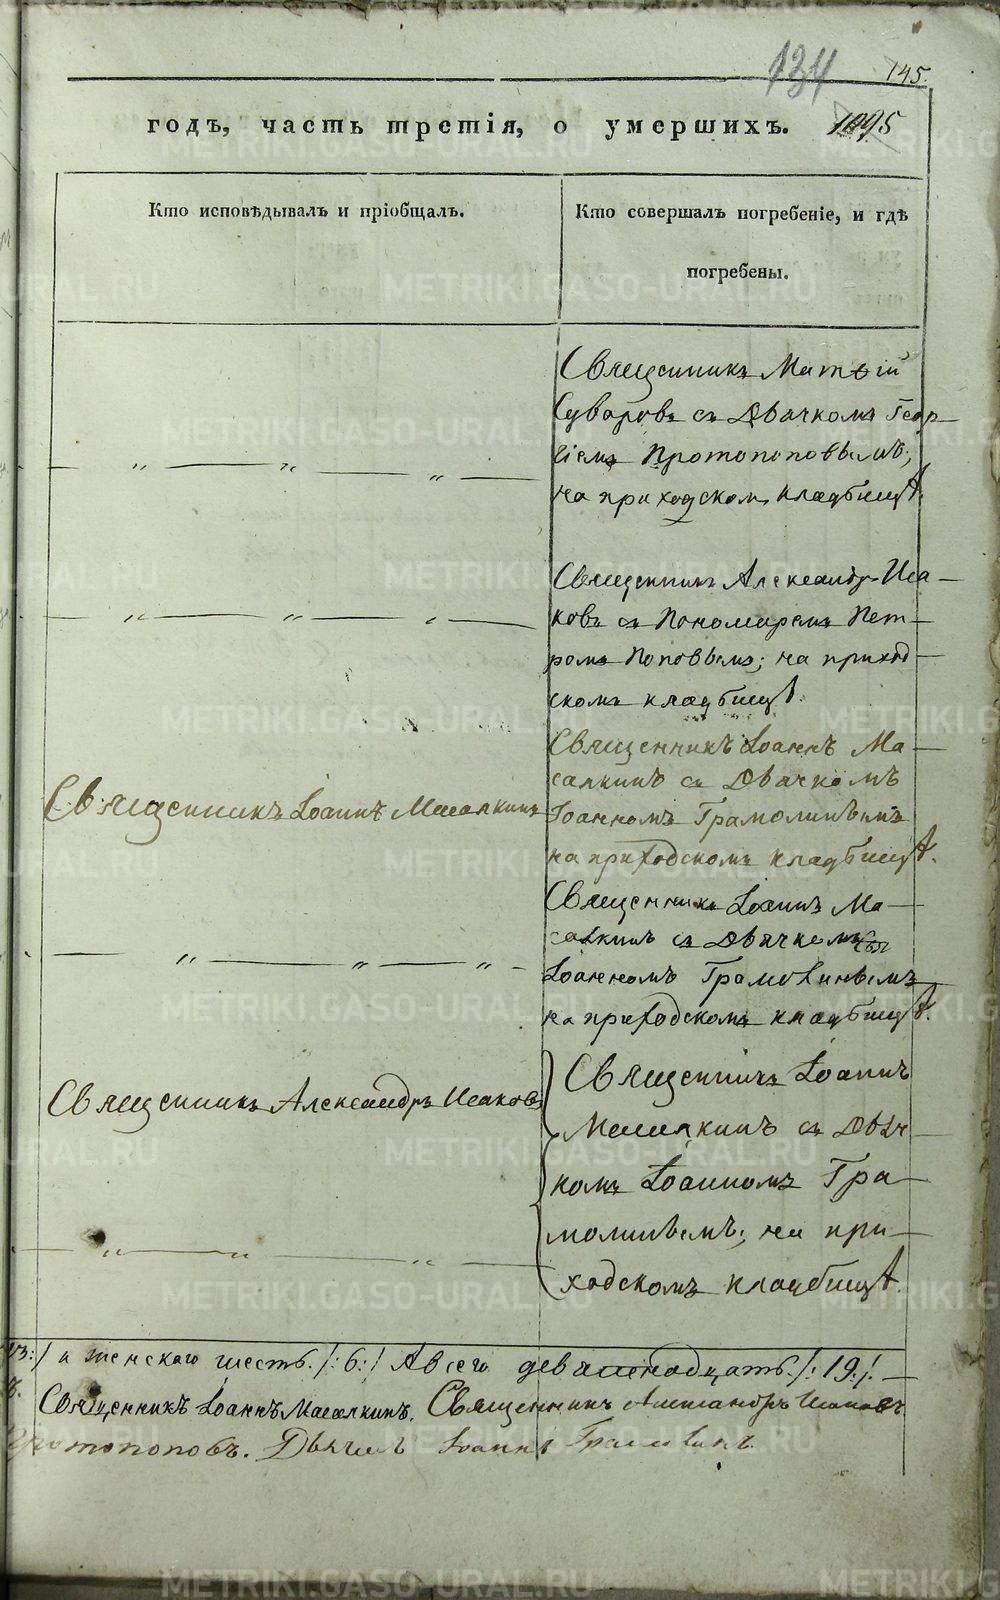 134 145.
годъ, часть третія, о умершихъ. 1095
Кто исповѣдывалъ и пріобщалъ.
Кто совершалъ погребеніе, и гдѣ
погребены.
Священникъ Матѳій
Суваровъ съ Дьячкомъ Геор-
гіемъ Протопоповымъ;
на приходскомъ кладбищѣ.
— „ — „ — „ —
Священникъ Александръ Иса-
ковъ съ Пономаремъ Пет-
ромъ Поповымъ; на приход-
скомъ кладбищѣ.
— „ — „ — „ —
Священникъ Іоаннъ Масалкинъ
Священникъ Іоаннъ Ма-
салкинъ съ Дьячкомъ
Іоанномъ Грамолинымъ
на приходскомъ кладбищѣ.
Священникъ Іоаннъ Ма-
салкинъ съ Дьячкомъ
Іоанномъ Грамолинымъ
на приходскомъ кладбищѣ.
— „ — „ — „ —
Священникъ Александръ Исаковъ
Священникъ Іоаннъ
Масалкинъ съ Дьяч-
комъ Іоанномъ Гра-
молинымъ; на при-
ходскомъ кладбищѣ.
— „ — „ — „ —
13:/ а женскаго шесть. /:6:/ А всего девятнадцать. /:19:/. —
Священникъ Іоаннъ Масалкинъ. Священникъ Александръ Исаковъ
Протопоповъ. Дьячекъ Іоаннъ Грамолинъ.
METRIKI.GASO-URAL.RU